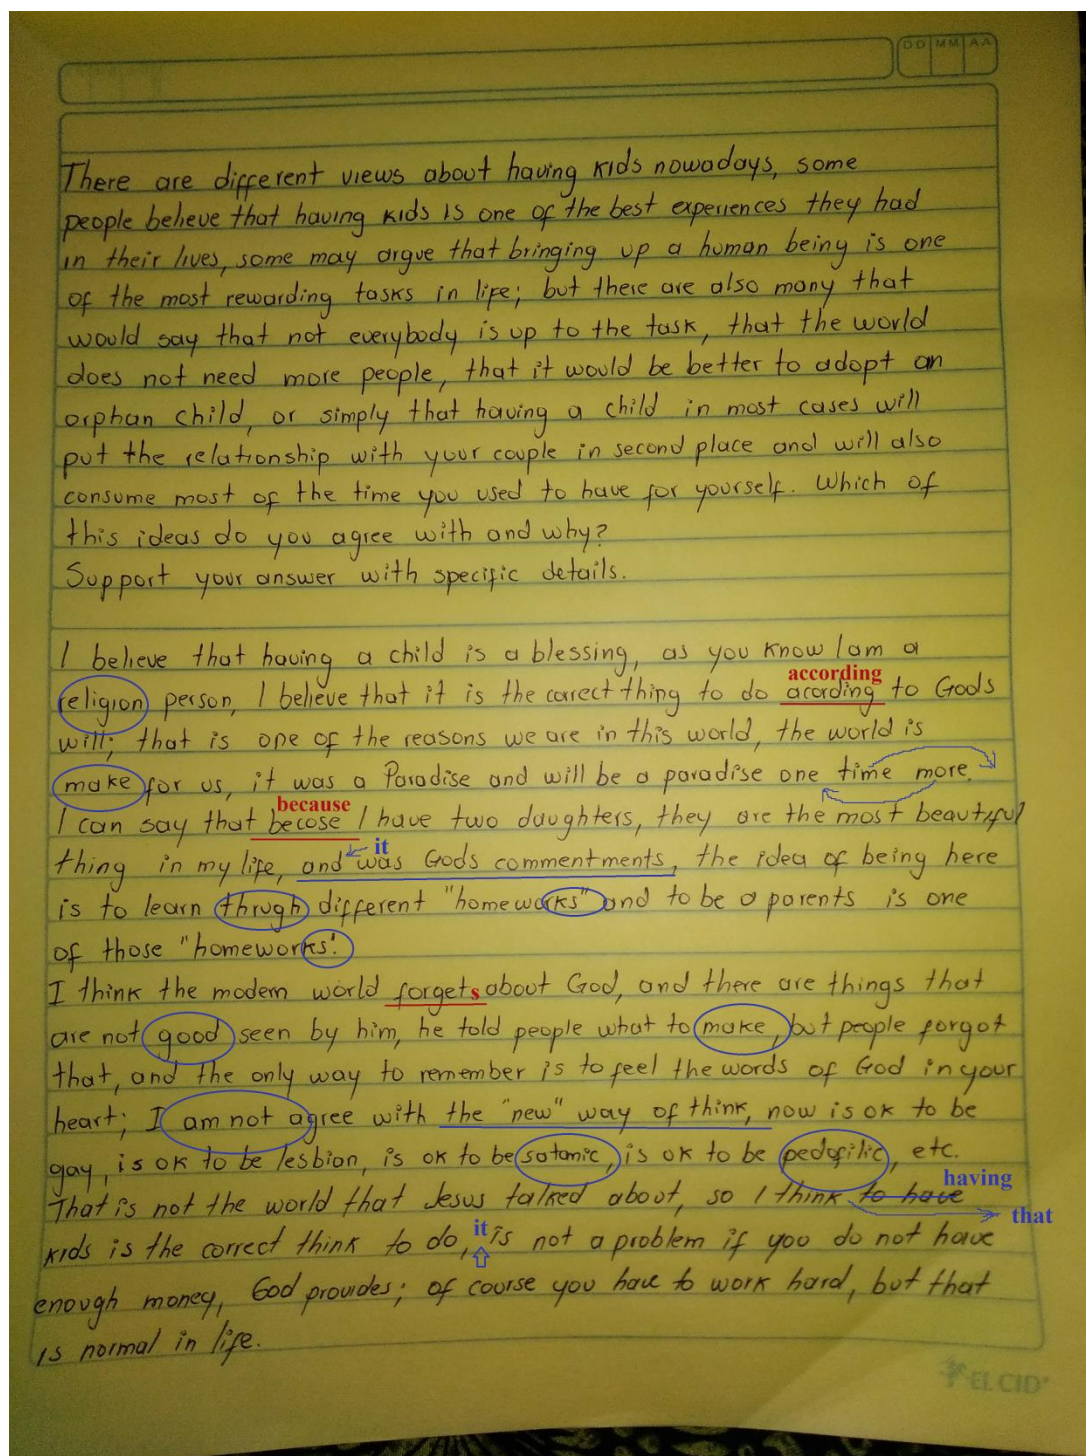 DD MM AA
There are different views about having kids nowadays, some
people believe that having kids is one of the best experiences they had
in their lives, some may argue that bringing up a human being is one
of the most rewarding tasks in life; but there are also many that
would say that not everybody is up to the task, that the world
does not need more people, that it would be better to adopt an
orphan child, or simply that having a child in most cases will
put the relationship with your couple in second place and will also
consume most of the time you used to have for yourself. Which of
this ideas do you agree with and why?
Support your answer with specific details.
I believe that having a child is a blessing, as you know I am a
according
religion person, I believe that it is the correct thing to do acording to Gods
will; that is one of the reasons we are in this world, the world is
make for us, it was a Paradise and will be a paradise one time more.
because
I can say that becose I have two daughters, they are the most beautiful
it
thing in my life, and was Gods commentments, the idea of being here
is to learn thrugh different "homeworks" and to be a parents is one
of those "homeworks".
I think the modern world forgets about God, and there are things that
are not good seen by him, he told people what to make, but people forgot
that, and the only way to remember is to feel the words of God in your
heart; I am not agree with the "new" way of think, now is ok to be
gay, is ok to be lesbian, is ok to be satanic, is ok to be pedofilic, etc.
having
That is not the world that Jesus talked about, so I think to have
that
it
kids is the correct think to do, is not a problem if you do not have
enough money, God provides; of course you have to work hard, but that
is normal in life.
EL CID